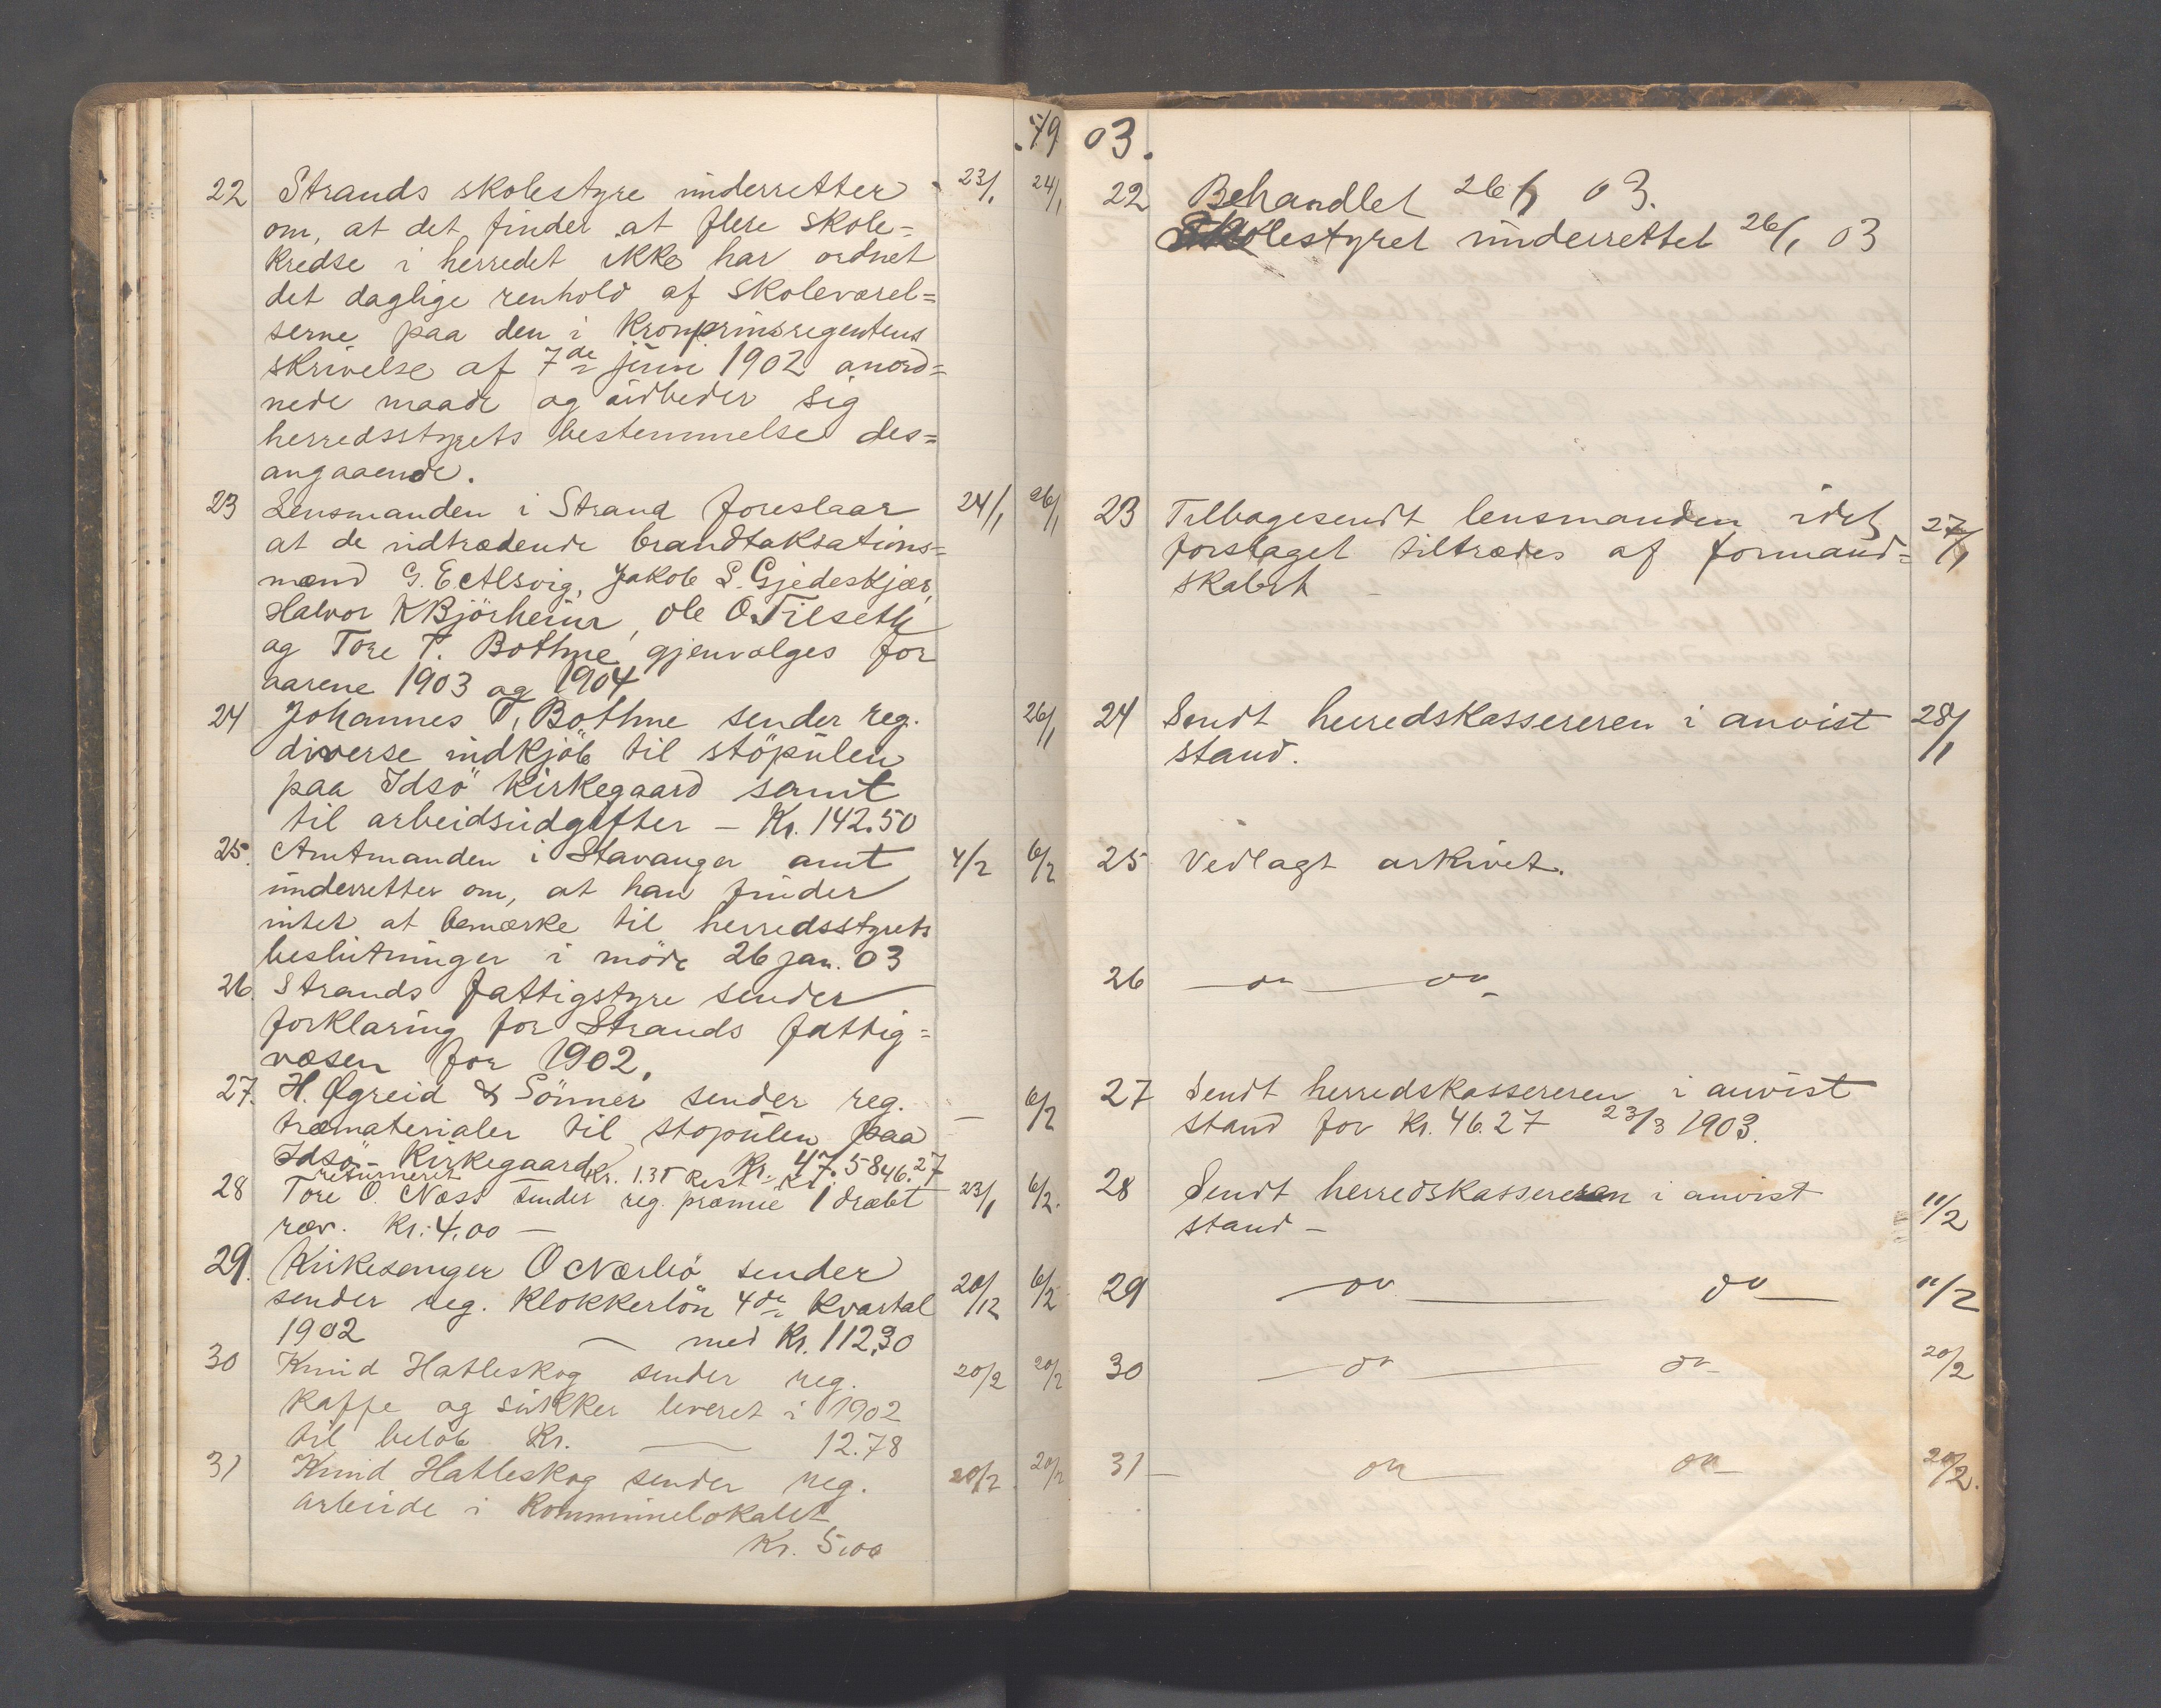 19
22 Strands skolestyre underretter 23/1 24/1
om, at det finder at flere skole=
kredse i herredet ikke har ordnet
det daglige renhold af skoleværel=
serne paa den i Kronprinsregentens
skrivelse af 7de juni 1902 anord=
nede maade og udbeder sig
herredsstyrets bestemmelse des=
angaaende.
23 Lensmanden i Strand foreslaar 24/1 26/1
at de udtrædende brandtaksations=
mænd G. E Alsvig, Jakob S. Gjedeskjær,
Halvor K Björheim, Ole O. Tilseth
og Tore T. Bothne gjenvælges for
aarene 1903 og 1904
24 Johannes T. Bothne sender reg. 26/1
diverse indkjöb til stöpulen
paa Idsö kirkegaard samt
til arbeidsudgifter – Kr. 142.50
25. Amtmanden i Stavanger amt 4/2 6/2
underretter om, at han finder
intet at bemærke til herredsstyrets
beslutninger i möde 26 jan. 03
26. Strands fattigstyre sender
forklaring for Strands fattig=
væsen for 1902.
27. H. Øgreid & Sönner sender reg. – 6/2
træmaterialer til stopulen paa
Idsö Kirkegaard Kr. 47.58 46.27
returneret Kr. 1.35 Rest Kr.
28 Tore O. Næss sender reg. præmie 1 dræbt 23/1 6/2.
ræv. Kr: 4.00 –
29. Kirkesanger O Nærbö sender 20/12 6/2
sender reg. Klokkerlön 4de Kvartal
1902 – med Kr. 112,30
30 Knud Hatleskog sender reg. 20/2 20/2
kaffe og sukker leveret i 1902
til belöb Kr. — 12.78
31 Knud Hatleskog sender reg. 20/2 20/2
arbeide i Kommunelokalet
Kr. 5.00
03.
22 Behandlet 26/1 03.
Skolestyret underrettet 26/1 03
23 Tilbagesendt lensmanden idet 27/1
forslaget tiltrædes af formand=
skabet
24 Sendt herredskassereren i anvist 28/1
stand.
25 Vedlagt arkivet.
26 — do — do –
27 Sendt herredskassereren i anvist
stand for Kr. 46.27 23/3 1903.
28 Sendt herredskassereren i anvist 11/2
stand –
29 — do — do — 11/2
30 — do — do – 20/2
31 – do — do – 20/2.